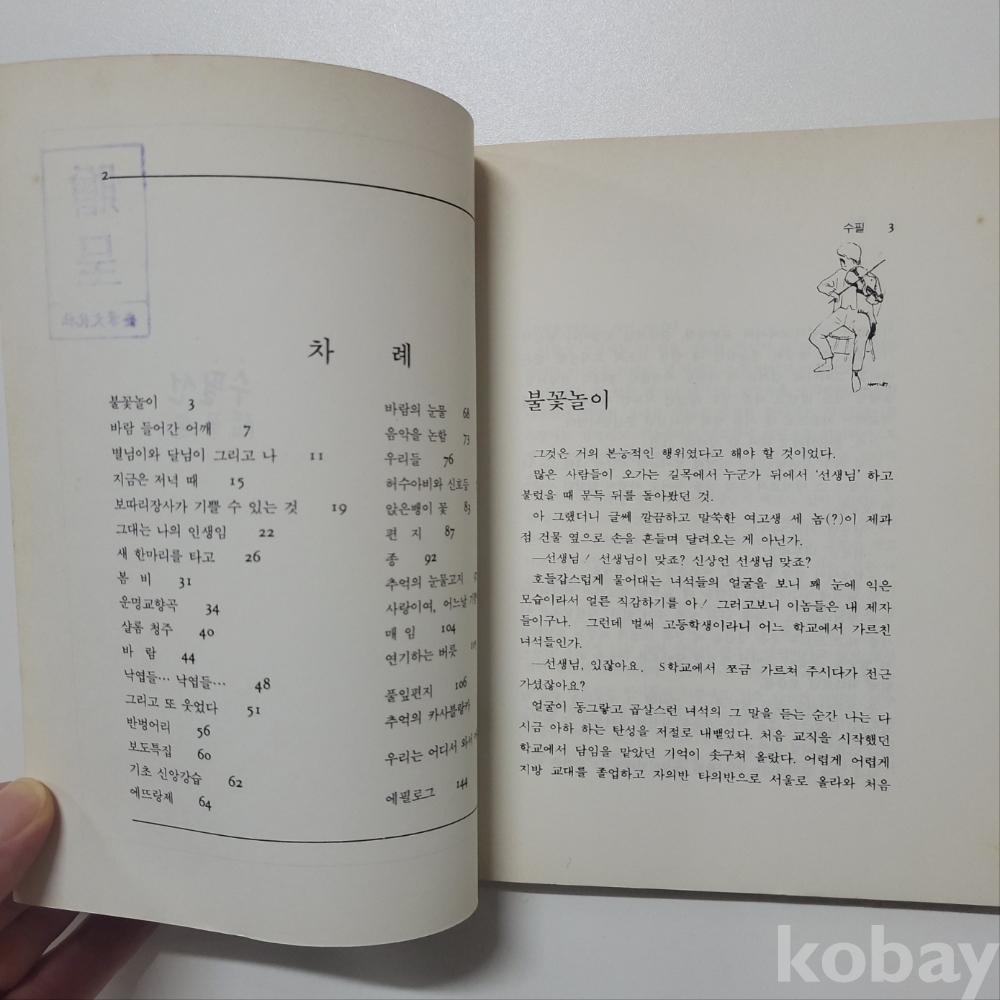 2
차 례
불꽃놀이 3
바람 들어간 어깨 7
별님이와 달님이 그리고 나 11
지금은 저녁 때 15
보따리장사가 기쁠 수 있는 것 19
그대는 나의 인생임 22
새 한마리를 타고 26
봄 비 31
운명교향곡 34
샬롬 청주 40
바 람 44
낙엽들… 낙엽들… 48
그리고 또 웃었다 51
반벙어리 56
보도특집 60
기초 신앙강습 62
에뜨랑제 64
바람의 눈물 68
음악을 논함 73
우리들 76
허수아비와 신호등
앉은뱅이 꽃 83
편 지 87
종 92
추억의 눈물고지
사랑이여, 어느날
매 임 104
연기하는 버릇
풀잎편지 106
추억의 카사블랑카
우리는 어디서 와서
에필로그 144
수필 3
불꽃놀이
그것은 거의 본능적인 행위였다고 해야 할 것이었다.
많은 사람들이 오가는 길목에서 누군가 뒤에서 ‘선생님’ 하고
불렀을 때 문득 뒤를 돌아봤던 것.
아 그랬더니 글쎄 깔끔하고 말쑥한 여고생 세 놈(?)이 제과
점 건물 옆으로 손을 흔들며 달려오는 게 아닌가.
—선생님! 선생님이 맞죠? 신상언 선생님 맞죠?
호들갑스럽게 물어대는 녀석들의 얼굴을 보니 꽤 눈에 익은
모습이라서 얼른 직감하기를 아! 그러고보니 이놈들은 내 제자
들이구나. 그런데 벌써 고등학생이라니 어느 학교에서 가르친
녀석들인가.
—선생님, 있잖아요. S학교에서 쪼금 가르쳐 주시다가 전근
가셨잖아요?
얼굴이 동그랗고 곱살스런 녀석의 그 말을 듣는 순간 나는 다
시금 아하 하는 탄성을 저절로 내뱉었다. 처음 교직을 시작했던
학교에서 담임을 맡았던 기억이 솟구쳐 올랐다. 어렵게 어렵게
지방 교대를 졸업하고 자의반 타의반으로 서울로 올라와 처음
kobay